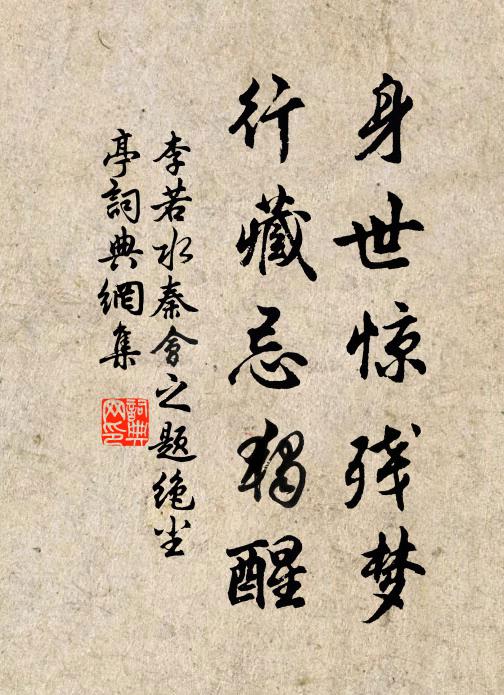 身世惊残梦
行藏忌独醒
李若水秦会之题绝尘
亭词典網集
詞典
网印